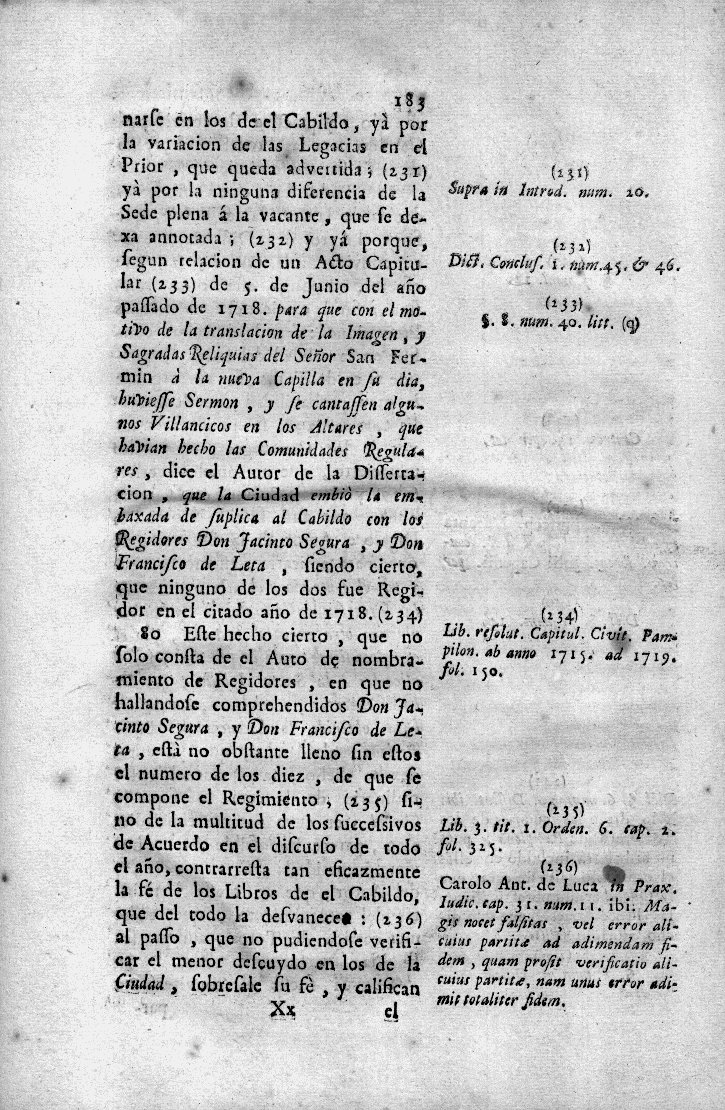 183
narſe en los de el Cabildo, yà por
la variacion de las Legacias en el
Prior, que queda advertida; (231)
yà por la ninguna diferencia de la
Sede plena á la vacante, que ſe de-
xa annotada; (232) y yá porque,
ſegun relacion de un Acto Capitu-
lar (233) de 5. de Junio del año
paſſado de 1718. para que con el mo-
tivo de la translacion de la Imagen, y
Sagradas Reliquias del Señor San Fer-
min à la nueva Capilla en ſu dia,
huvieſſe Sermon, y ſe cantaſſen algu-
nos Villancicos en los Altares, que
havian hecho las Comunidades Regula-
res, dice el Autor de la Diſſerta-
cion, que la Ciudad embiò la em-
baxada de ſuplica al Cabildo con los
Regidores Don Jacinto Segura, y Don
Franciſco de Leta, ſiendo cierto,
que ninguno de los dos fue Regi-
dor en el citado año de 1718. (234)
80 Eſte hecho cierto, que no
ſolo conſta de el Auto de nombra-
miento de Regidores, en que no
hallandoſe comprehendidos Don Ja-
cinto Segura, y Don Franciſco de Le-
ta, eſtà no obſtante lleno ſin eſtos
el numero de los diez, de que ſe
compone el Regimiento, (235) ſi-
no de la multitud de los ſucceſsivos
de Acuerdo en el diſcurſo de todo
el año, contrarreſta tan eficazmente
la fé de los Libros de el Cabildo,
que del todo la deſvanece: (236)
al paſſo, que no pudiendoſe verifi-
car el menor deſcuydo en los de la
Ciudad, ſobreſale ſu fè, y califican
Xx el
(231)
Supra in Introd. num. 20.
(232)
Dict. Concluſ. 1. num.45. & 46.
(233)
§. 8. num. 40. litt. (q)
(234)
Lib. reſolut. Capitul. Civit. Pam-
pilon. ab anno 1715. ad 1719.
fol. 150.
(235)
Lib. 3. tit. 1. Orden. 6. cap. 2.
fol. 325.
(236)
Carolo Ant. de Luca in Prax.
Iudic. cap. 31. num. 11. ibi: Ma-
gis nocet falſitas, vel error ali-
cuius partitæ ad adimendam fi-
dem, quam proſit verificatio ali-
cuius partitæ, nam unus error adi-
mit totaliter fidem.